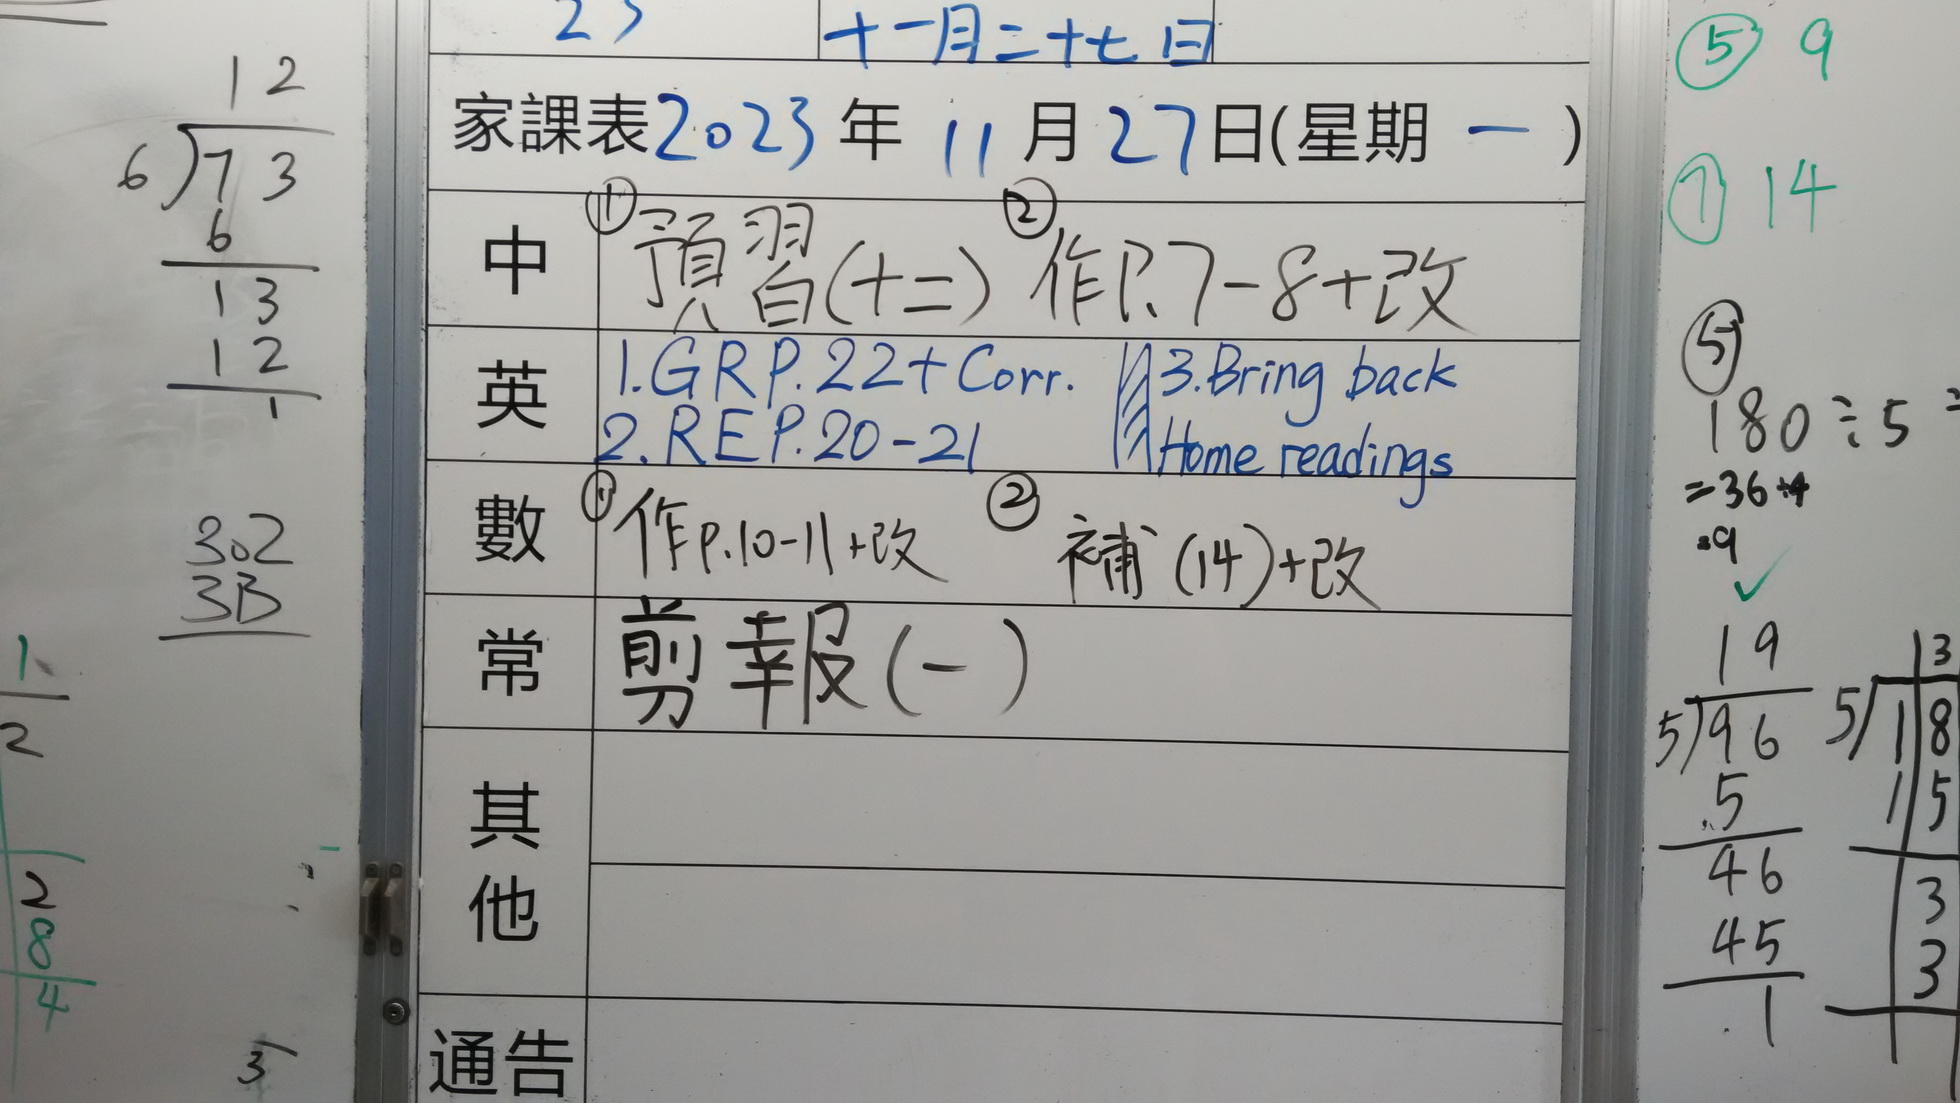 12
6)73
6
13
12
1
302
3B
1
2
2
8
4
3
十一月二十七日
家課表2023年11月27日(星期一)
中 ①預習(十二) ②作P.7-8+改
英 1.GRP.22+Corr. 3.Bring back
2.REP.20-21 Home readings
數 ①作P.10-11+改 ②補(14)+改
常 剪報(一)
其他
通告
⑤ 9
⑦ 14
⑤
180÷5=
=36÷4
9
✓
19
5)96
5
46
45
1
3
5)18
15
3
3